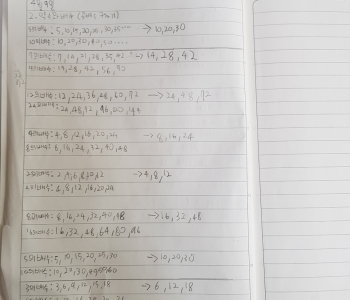 5의배수: 5, 10, 15, 20, 25, 30, 35 ···· → 10, 20, 30
10의배수: 10, 20, 30, 40, 50 ·····
7의배수: 7, 14, 21, 28, 35, 42 → 14, 28, 42
14의배수: 14, 28, 42, 56, 70
12의배수: 12, 24, 36, 48, 60, 72 → 24, 48, 72
24의배수: 24, 48, 72, 96, 120, 144
4의배수: 4, 8, 12, 16, 20, 24 → 8, 16, 24
8의배수: 8, 16, 24, 32, 40, 48
2의배수: 2, 4, 6, 8, 10, 12 → 4, 8, 12
4의배수: 4, 8, 12, 16, 20, 24
8의배수: 8, 16, 24, 32, 40, 48 → 16, 32, 48
16의배수: 16, 32, 48, 64, 80, 96
5의배수: 5, 10, 15, 20, 25, 30 → 10, 20, 30
10의배수: 10, 20, 30, 40, 50, 60
3의배수: 3, 6, 9, 12, 15, 18 → 6, 12, 18